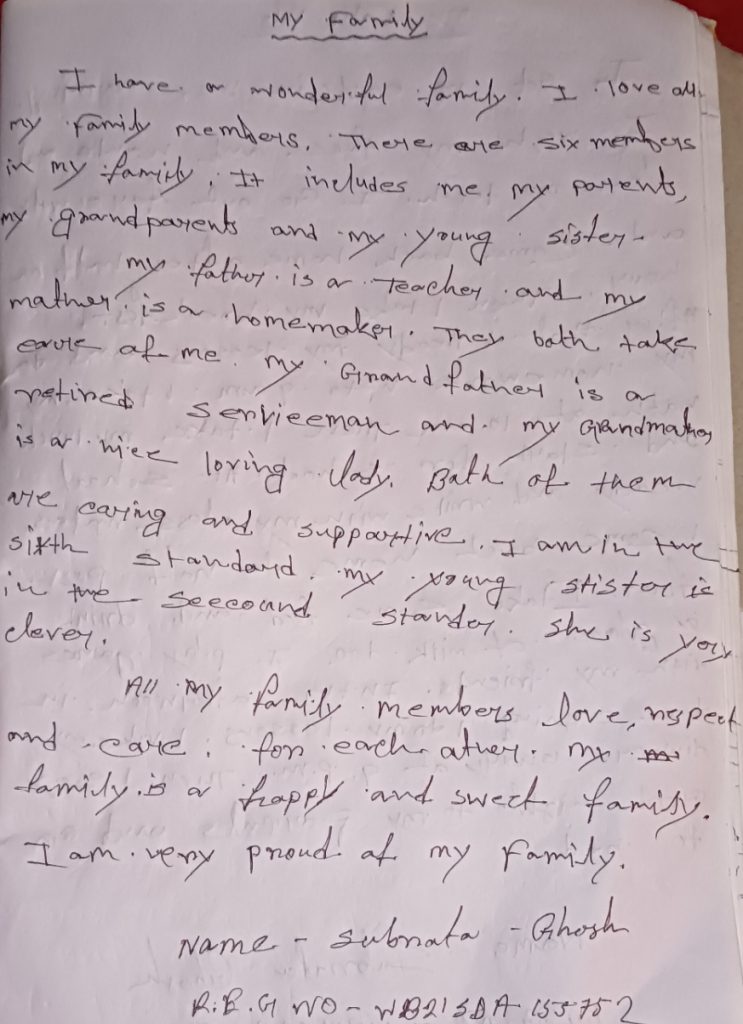 My Family
I have a wonderful family. I love all
my family members. There are six members
in my family. It includes me, my parents,
my grandparents and my young sister.
my father is a Teacher and my
mather is a homemaker. They bath take
care af me. my Grandfather is a
retired servieeman and my Grandmather
is a niee loving lady. Bath of them
are caring and suppartive. I am in the
sixth standard. my young stister is
in the seecound standar. she is very
clever.
All my family members love, respect
and care for each ather. my
family is a happy and sweet family.
I am very proud af my family.
Name - Subrata - Ghosh
R.E.G NO - WB21SDA 155752